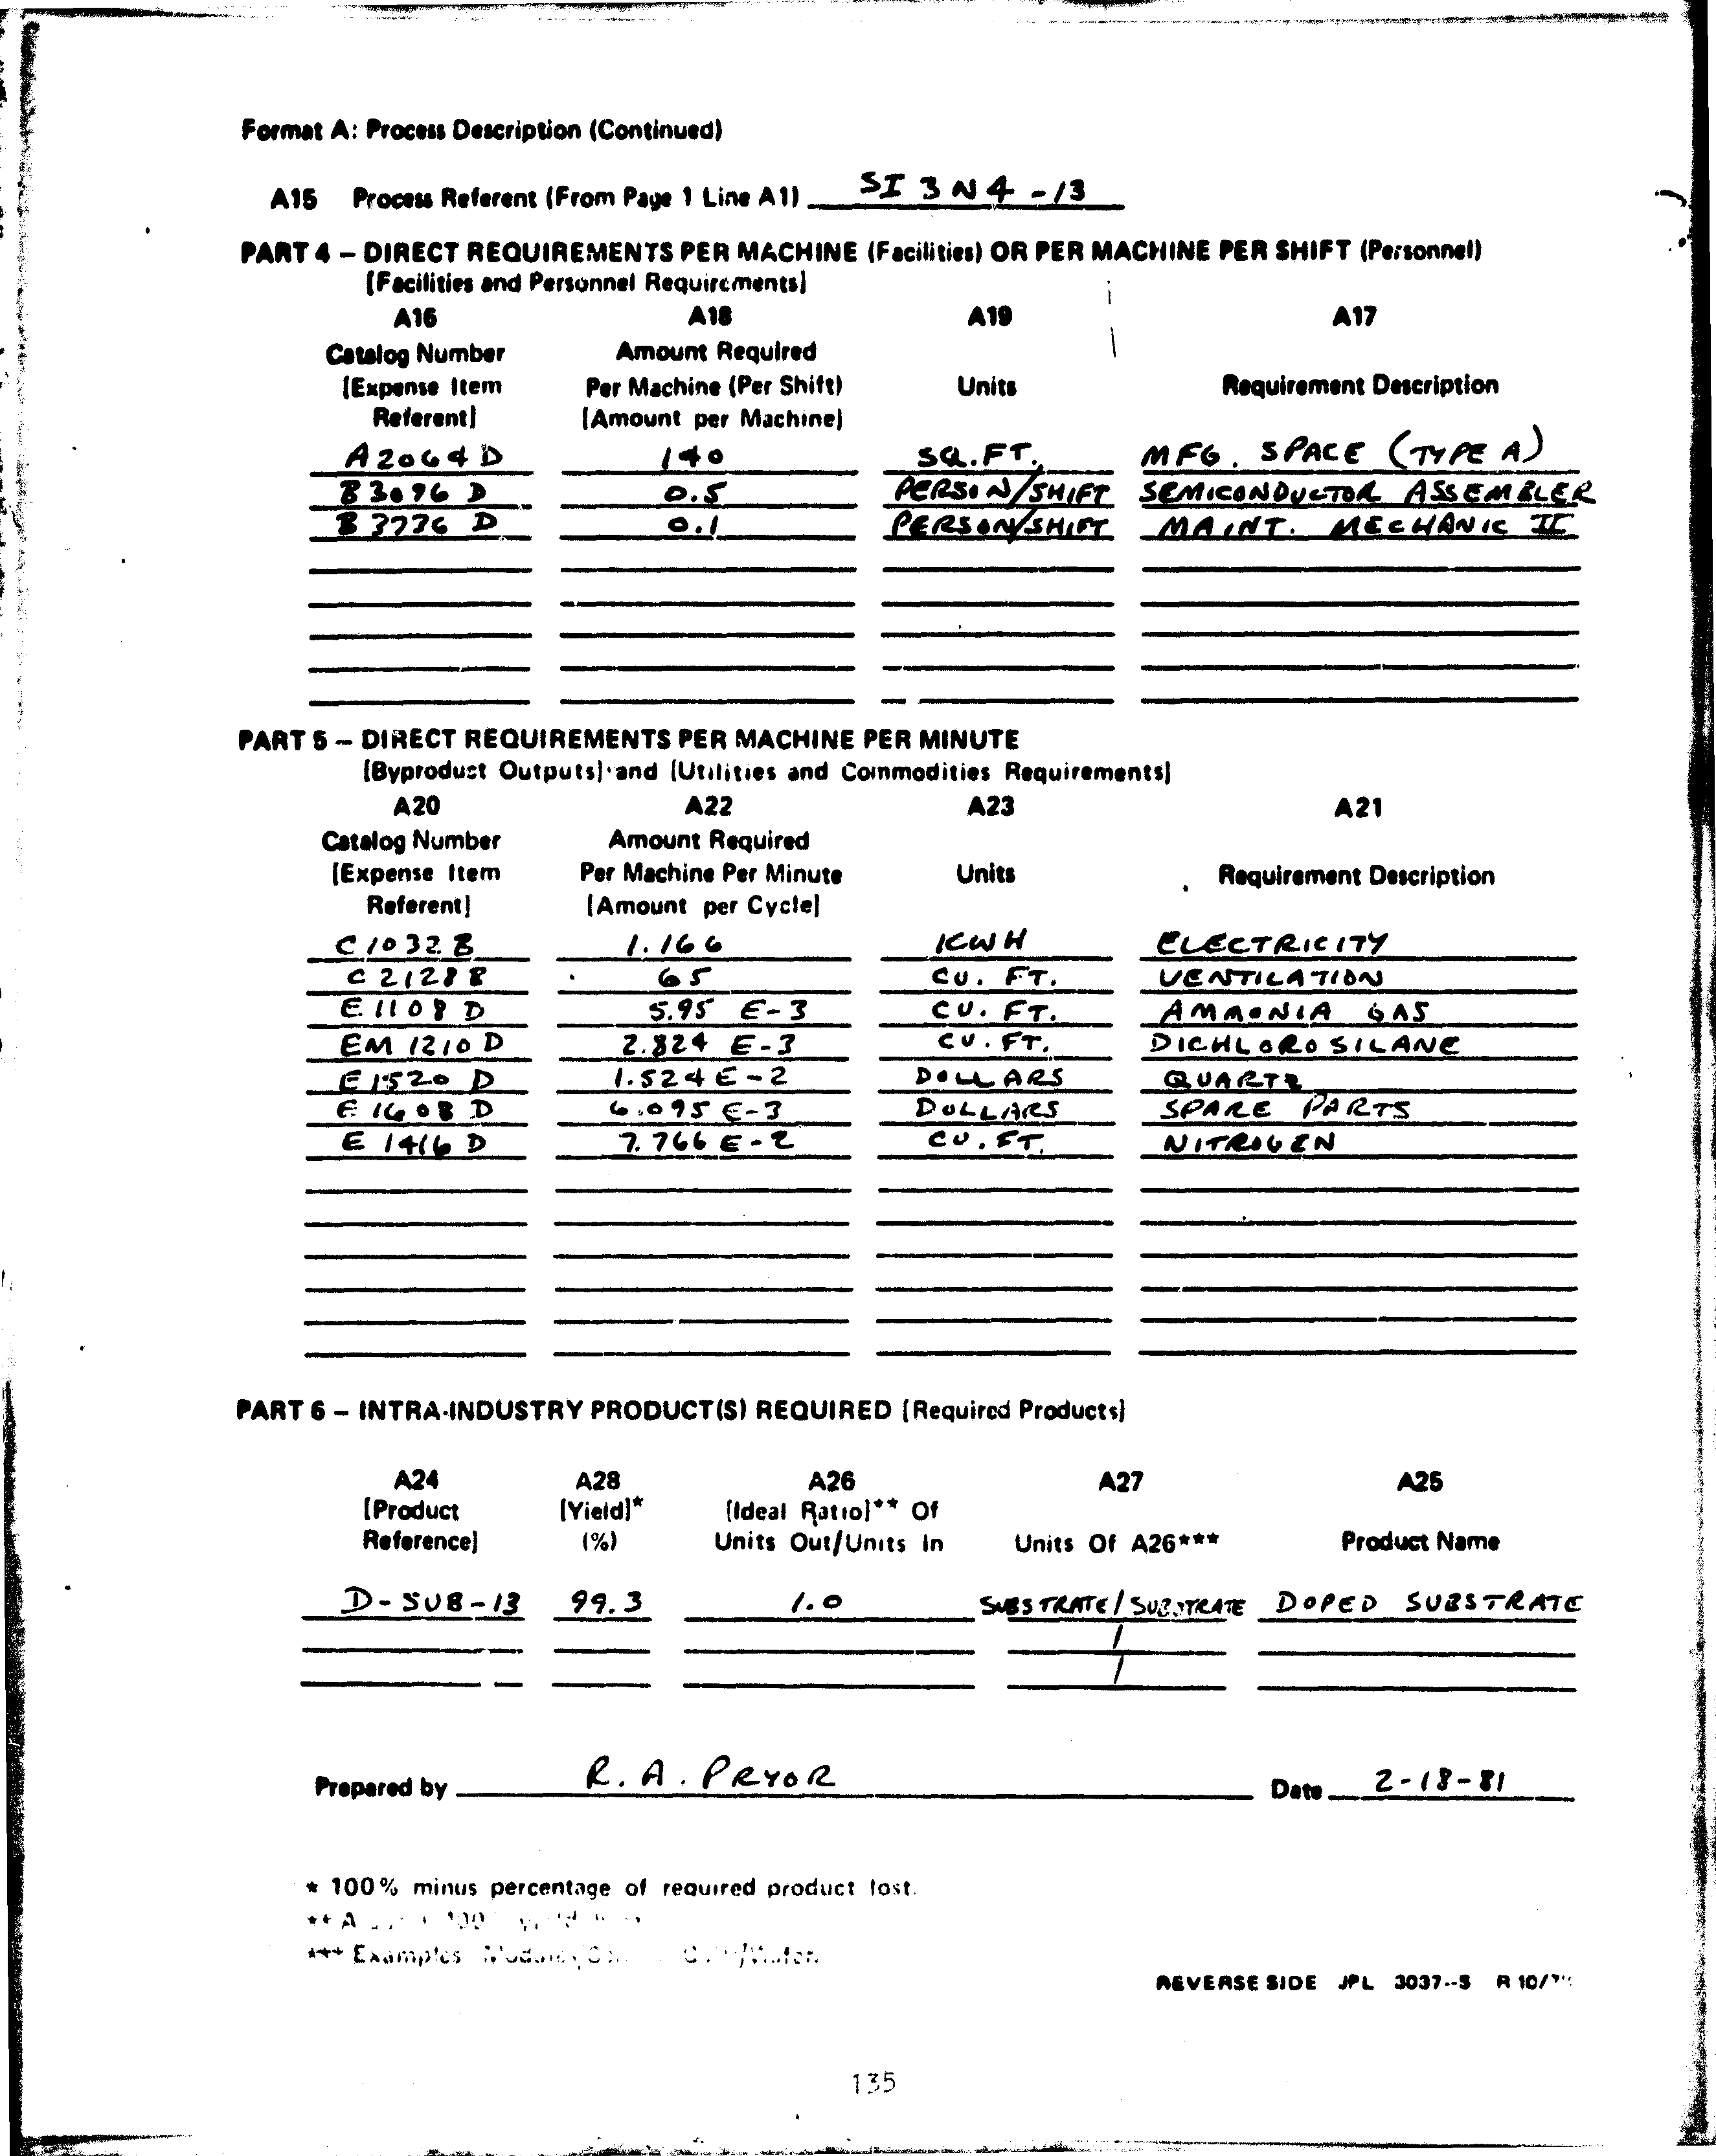 Format A: Process Description (Continued)
A15 Process Referent (From Page 1 Line A1) SI 3 N 4 - 13
PART 4 – DIRECT REQUIREMENTS PER MACHINE (Facilities) OR PER MACHINE PER SHIFT (Personnel)
[Facilities and Personnel Requirements]
A16 A18 A19 A17
Catalog Number Amount Required
[Expense Item Per Machine (Per Shift) Units Requirement Description
Referent] [Amount per Machine]
A2064D 140 SQ.FT. MFG. SPACE (TYPE A)
B3096 D 0.5 PERSON/SHIFT SEMICONDUCTOR ASSEMBLER
B3736 D 0.1 PERSON/SHIFT MAINT. MECHANIC II
PART 5 – DIRECT REQUIREMENTS PER MACHINE PER MINUTE
[Byproduct Outputs] and [Utilities and Commodities Requirements]
A20 A22 A23 A21
Catalog Number Amount Required
[Expense Item Per Machine Per Minute Units Requirement Description
Referent] [Amount per Cycle]
C1032B 1.166 KWH ELECTRICITY
C2128B 65 CU. FT. VENTILATION
E1108 D 5.95 E-3 CU. FT. AMMONIA GAS
EM 1210 D 2.824 E-3 CU. FT. DICHLOROSILANE
E1520 D 1.524E-2 DOLLARS QUARTZ
E1608 D 6.095 E-3 DOLLARS SPARE PARTS
E 1416 D 7.766 E-2 CU.FT. NITROGEN
PART 6 – INTRA-INDUSTRY PRODUCT(S) REQUIRED [Required Products]
A24 A28 A26 A27 A25
[Product [Yield]* [Ideal Ratio]** Of
Reference] (%) Units Out/Units In Units Of A26*** Product Name
D-SUB-13 99.3 1.0 SUBSTRATE/SUBSTRATE DOPED SUBSTRATE
/
/
Prepared by R. A. PRYOR Date 2-18-81
* 100% minus percentage of required product lost.
** A
*** Examples
REVERSE SIDE JPL 3037--S R 10/
135